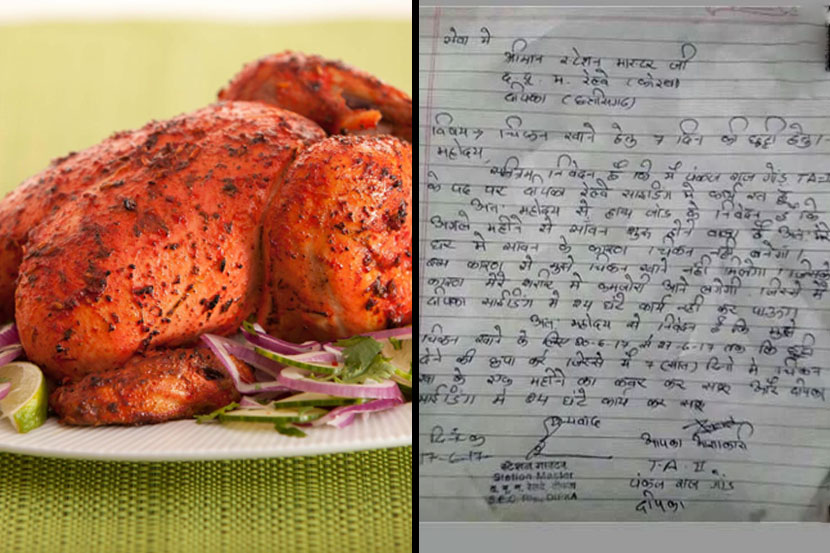 सेवा में
श्रीमान स्टेशन मास्टर जी
द. पू. म. रेल्वे (कोरबा)
दीपका (छत्तीसगढ़)
विषय → चिकन खाने हेतु 7 दिन की छुट्टी हेतु।
महोदय,
निवेदन है कि मैं पंकज राज गोंड TA-II
के पद पर दीपका रेलवे साइडिंग में कार्य रत हूँ
अतः महोदय से हाथ जोड़ के निवेदन है कि
अगले महीने से सावन शुरू होने वाला है अतः मेरे
घर में सावन के कारण चिकन नहीं बनेगी।
इस कारण से मुझे चिकन खाने नहीं मिलेगा। जिसके
कारण मेरे शरीर में कमजोरी आने लगेगी जिससे मैं
दीपका साइडिंग में 24 घंटे कार्य नहीं कर पाऊंगा
अतः महोदय से निवेदन है कि मुझे
चिकन खाने के लिए 20-6-17 से 27-6-17 तक कि छुट्टी
देने की कृपा कर जिससे मैं 7 (सात) दिनों में चिकन
खा के एक महीने का कवर कर सकू और दीपका
साईडिंग में 24 घंटे कार्य कर सकू
धन्यवाद
दिनांक
17-6-17
आपका आज्ञाकारी
T-A II
पंकज राज गोंड
दीपका
स्टेशन मास्टर
Station Master
द. पू. म. रेलवे दीपका
S.E.C. Rly., DIPKA